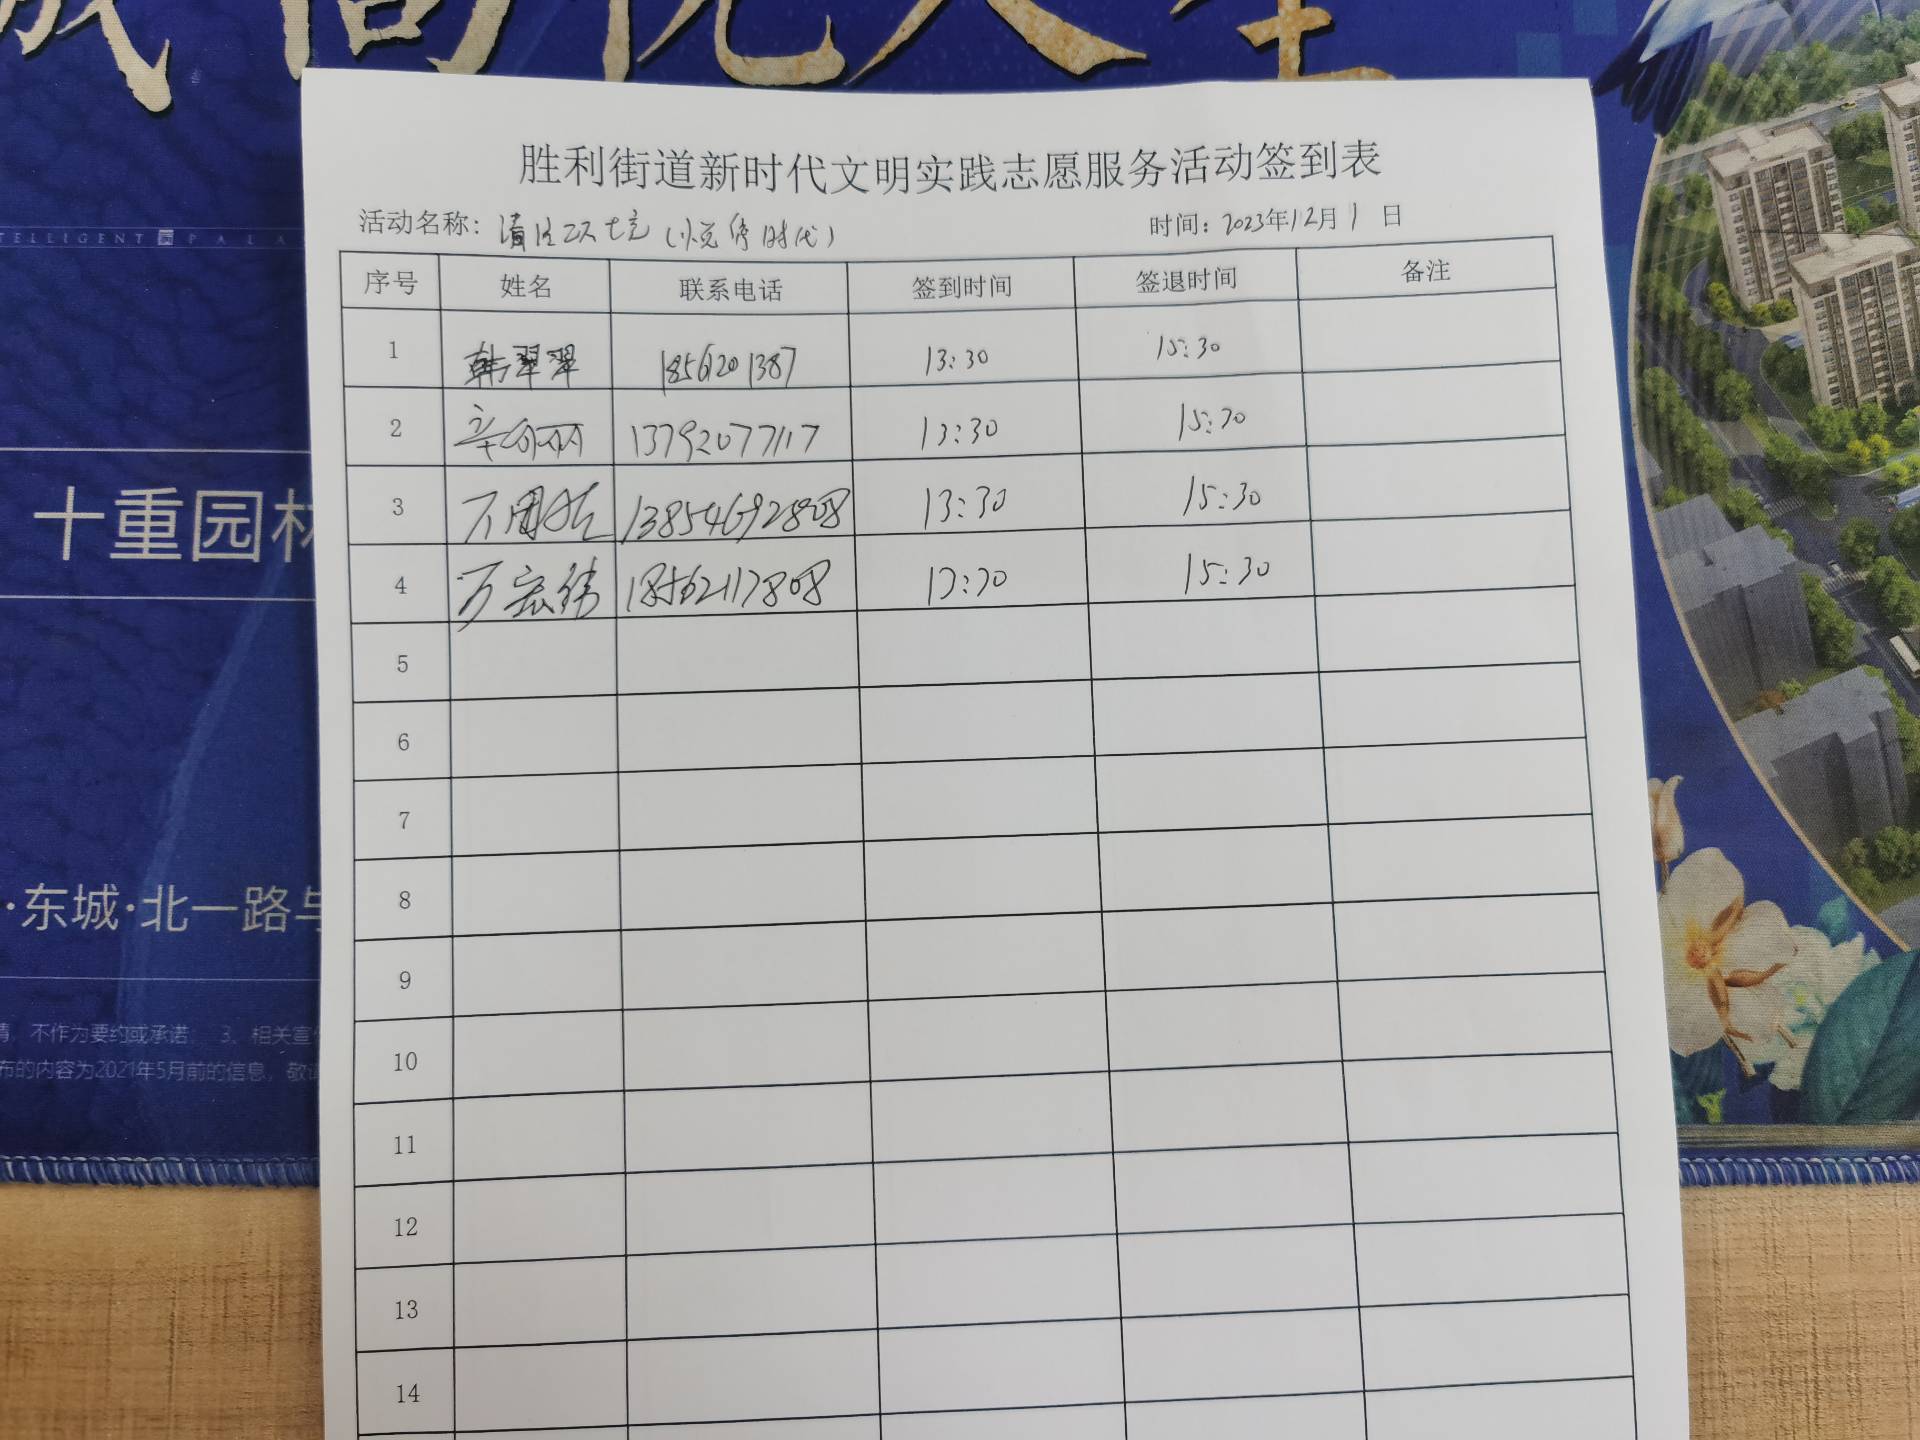 TELLIGENT PALA
十重园林
·东城·北一路与
不作为要约或承诺; 3、相关宣
布的内容为2021年5月前的信息，敬请
胜利街道新时代文明实践志愿服务活动签到表
活动名称: 清洁环境 时代) 时间: 2023年12月1日
序号 姓名 联系电话 签到时间 签退时间 备注
1 韩翠翠 1856201387 13:30 15:30
2 13792077117 13:30 15:30
3 13854692808 13:30 15:30
4 万宏伟 18562117808 13:30 15:30
5
6
7
8
9
10
11
12
13
14